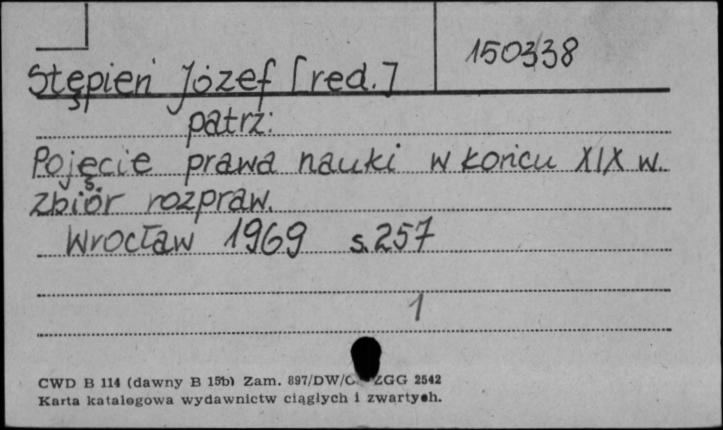 150338
Stępień Józef [red.]
patrz:
Pojęcie prawa nauki w końcu XIX w.
Zbiór rozpraw.
Wrocław 1969 s.257
1
CWD B 114 (dawny B 15b) Zam. 897/DW/ ZGG 2542
Karta katalogowa wydawnictw ciągłych i zwartych.